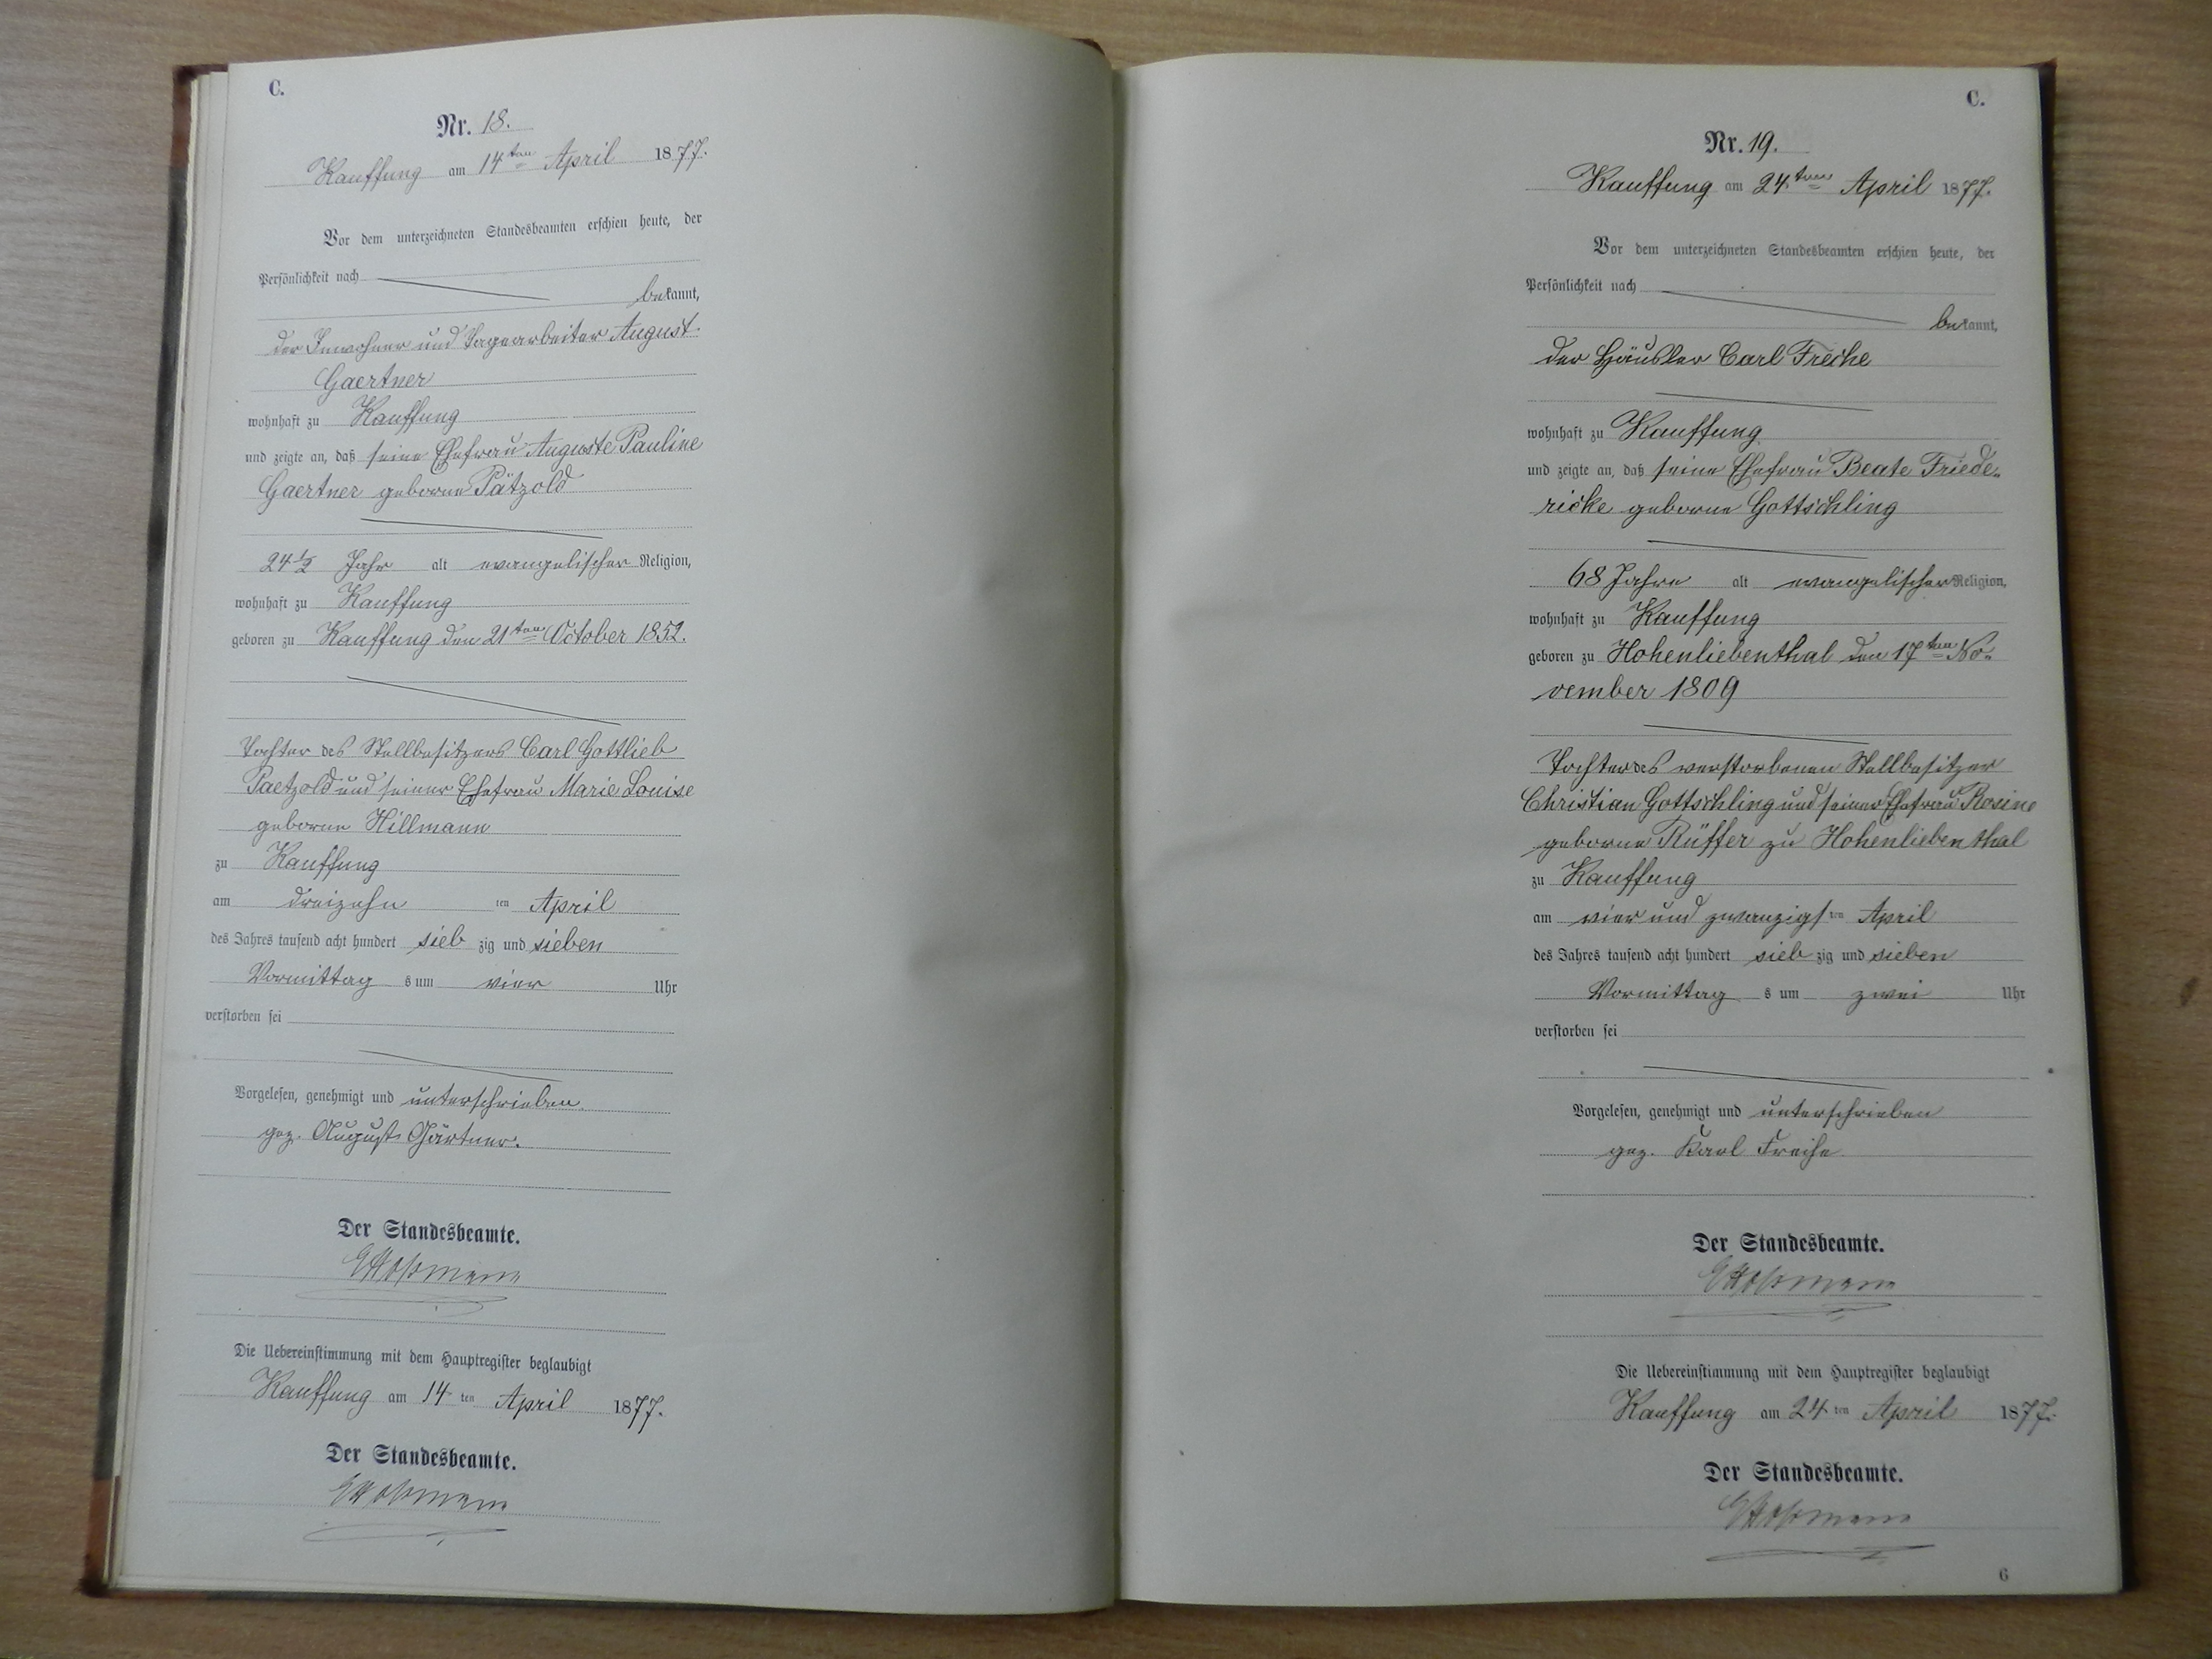 C.
Nr. 18.
Kauffung am 14ten April 1877.
Vor dem unterzeichneten Standesbeamten erschien heute, der
Persönlichkeit nach
bekannt,
der Inwohner und Tagearbeiter August
Gaertner
wohnhaft zu Kauffung
und zeigte an, daß seine Ehefrau Auguste Pauline
Gaertner geborne Pätzold
24 1/2 Jahr alt evangelischer Religion,
wohnhaft zu Kauffung
geboren zu Kauffung den 21ten October 1852.
Tochter des Stellbesitzers Carl Gottlieb
Paetzold und seiner Ehefrau Marie Louise
geborne Hillmann
zu Kauffung
am dreizehn ten April
des Jahres tausend acht hundert siebzig und sieben
Vormittags um vier Uhr
verstorben sei
Vorgelesen, genehmigt und unterschrieben.
gez. August Gärtner.
Der Standesbeamte.
Die Uebereinstimmung mit dem Hauptregister beglaubigt
Kauffung am 14 ten April 1877.
Der Standesbeamte.
C.
Nr. 19.
Kauffung am 24ten April 1877.
Vor dem unterzeichneten Standesbeamten erschien heute, der
Persönlichkeit nach
bekannt,
der Häusler Carl Freche
wohnhaft zu Kauffung
und zeigte an, daß seine Ehefrau Beate Friede-
ricke geborne Gottschling
68 Jahre alt evangelischer Religion,
wohnhaft zu Kauffung
geboren zu Hohenliebenthal den 17ten No-
vember 1809
Tochter des verstorbenen Stellbesitzer
Christian Gottschling und seiner Ehefrau Rosine
geborne Rüffer zu Hohenliebenthal
zu Kauffung
am vier und zwanzigsten April
des Jahres tausend acht hundert siebzig und sieben
Vormittags um zwei Uhr
verstorben sei
Vorgelesen, genehmigt und unterschrieben
gez. Karl Freche
Der Standesbeamte.
Die Uebereinstimmung mit dem Hauptregister beglaubigt
Kauffung am 24 ten April 1877.
Der Standesbeamte.
6